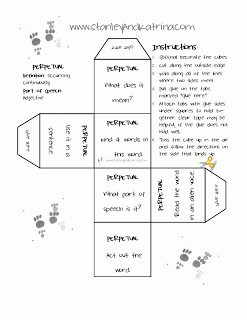 www.stanleyandkatrina.com
PERPETUAL
Definition: occurring
continuously
Part of speech:
Adjective
Instructions
1. Optional: decorate the cubes
2. Cut along the outside edge
3. Fold along all of the lines
where two sides meet
4. Put glue on the tabs
marked "glue here"
5. Attach tabs with glue sides
under squares to hold to-
gether. Clear tape may be
helpful if the glue does not
hold well
6. Toss the cube up in the air
and follow the directions on
the side that lands up
glue here
PERPETUAL
What does it
mean?
glue here
PERPETUAL
Use it in a
sentence
PERPETUAL
Find 4 words in
this word
PERPETUAL
What part of
speech is it?
PERPETUAL
Read the word
in an alien voice
glue here
PERPETUAL
Act out the
word